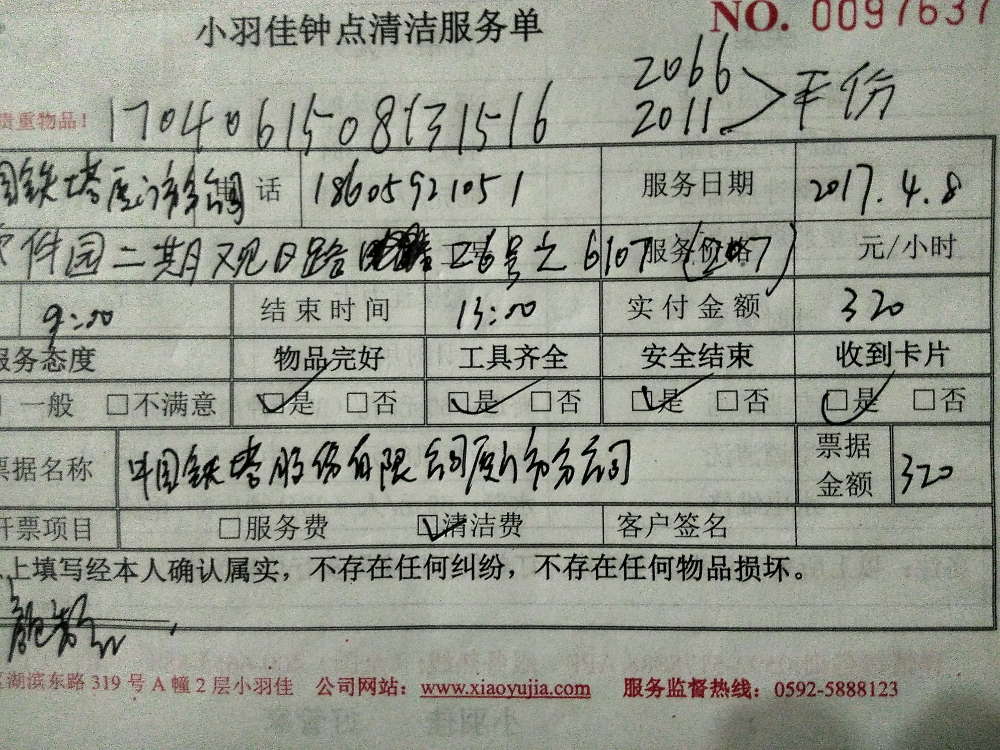 小羽佳钟点清洁服务单 NO. 0097637
2066
2011 平份
贵重物品！ 170406150893 1516
国铁塔厦门市分公司 电话 18605921051 服务日期 2017.4.8
软件园二期观日路 26号之 6107 (207) 服务价格 元/小时
9:00 结束时间 13:00 实付金额 320
服务态度 物品完好 工具齐全 安全结束 收到卡片
□一般 □不满意 □是 □否 □是 □否 □是 □否 □是 □否
票据名称 中国铁塔股份有限公司厦门市分公司 票据金额 320
开票项目 □服务费 □清洁费 客户签名
上填写经本人确认属实，不存在任何纠纷，不存在任何物品损坏。
湖滨东路 319 号 A 幢 2 层小羽佳 公司网站：www.xiaoyujia.com 服务监督热线：0592-5888123